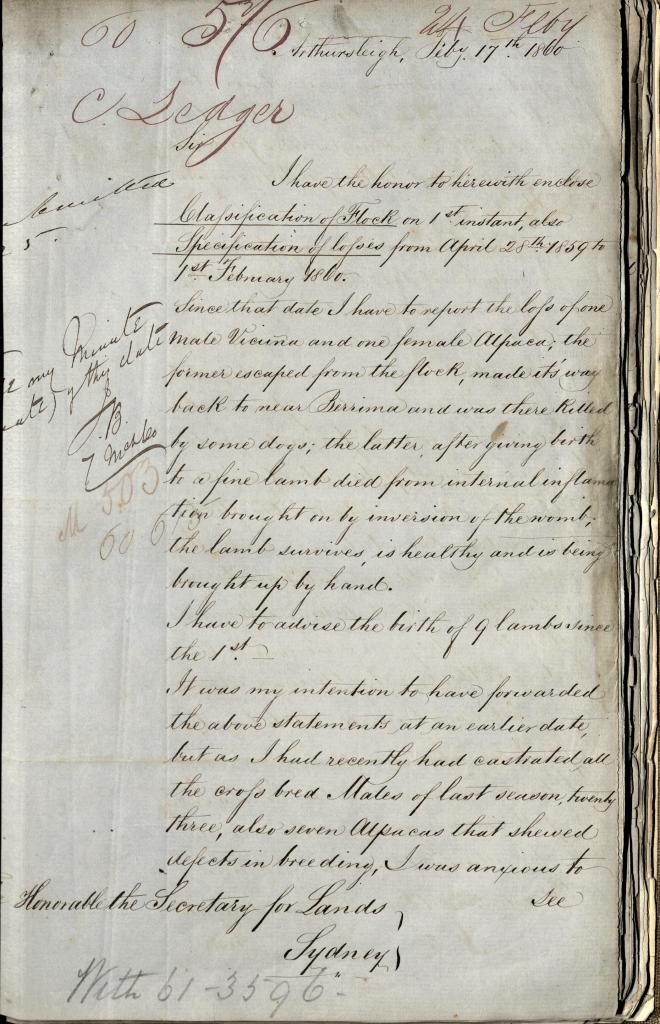 60 576 24 Feby
Arthursleigh, Feby. 17th 1860
C Ledger
Sir
I have the honor to herewith enclose
Classification of Flock on 1st instant, also
Specification of losses from April 28th 1859 to
1st February 1860.
Since that date I have to report the loss of one
male Vicuña and one female Alpaca; the
former escaped from the flock, made it's way
back to near Berrima and was there killed
by some dogs; the latter, after giving birth
to a fine lamb died from internal inflama
tion brought on by inversion of the womb;
the lamb survives, is healthy and is being
brought up by hand.
I have to advise the birth of 9 lambs since
the 1st.
It was my intention to have forwarded
the above statements at an earlier date,
but as I had recently had castrated all
the cross bred Males of last season, twenty
three, also seven Alpacas that shewed
defects in breeding, I was anxious to
see
Honorable the Secretary for Lands
Sydney
my Minute
of this date
J.B.
M 503
60
With 61-3596-